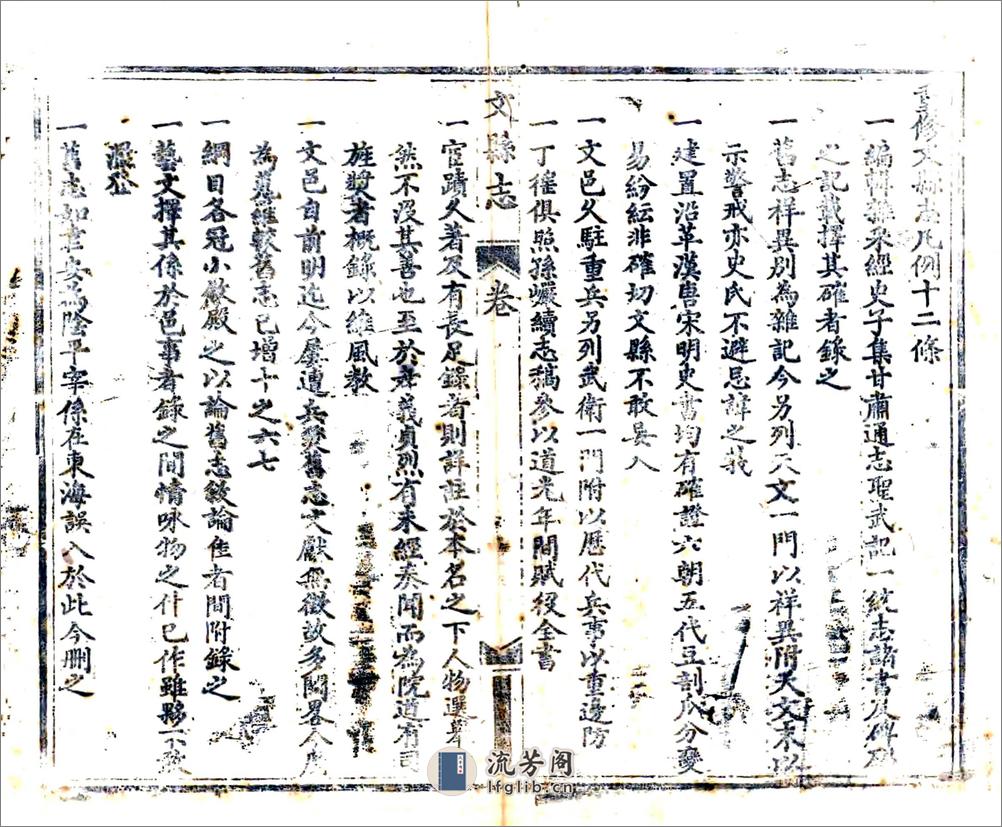 重修文縣志凡例十二條
一編輯雜采經史子集甘肅通志聖武記一統志諸書及碑
之記載擇其確者錄之
一舊志祥異別為雜記今另列天文一門以祥異附天文末以
示警戒亦史氏不避忌諱之
一建置沿革漢唐宋明史書均有確證六朝五代豆剖瓜分變
易紛紜非確切文縣不敢
一文邑久駐重兵另列武衛一門附以歷代兵事以重邊防
一丁徭俱照孫 續志稿參以道光年間賦役全書
文縣志
卷
一宦蹟久著及有長足錄者則詳註於本名之下人物選舉
然不沒其善也至於孝義貞烈有未經奏聞而為院道有司
旌獎者概錄以維風教
一文邑自前明迄今屢遭兵燹舊志文獻無徵故多闕畧
為蒐羅較舊志已增十之六七
一綱目各冠小敘殿之以論舊志敘論佳者間附錄之
一藝文擇其係於邑事者錄之間情咏物之什已作雖夥不敢
濫登
一舊志如 安為陰平宰係在東海誤入於此今刪之
流芳阁
lfglib.cn